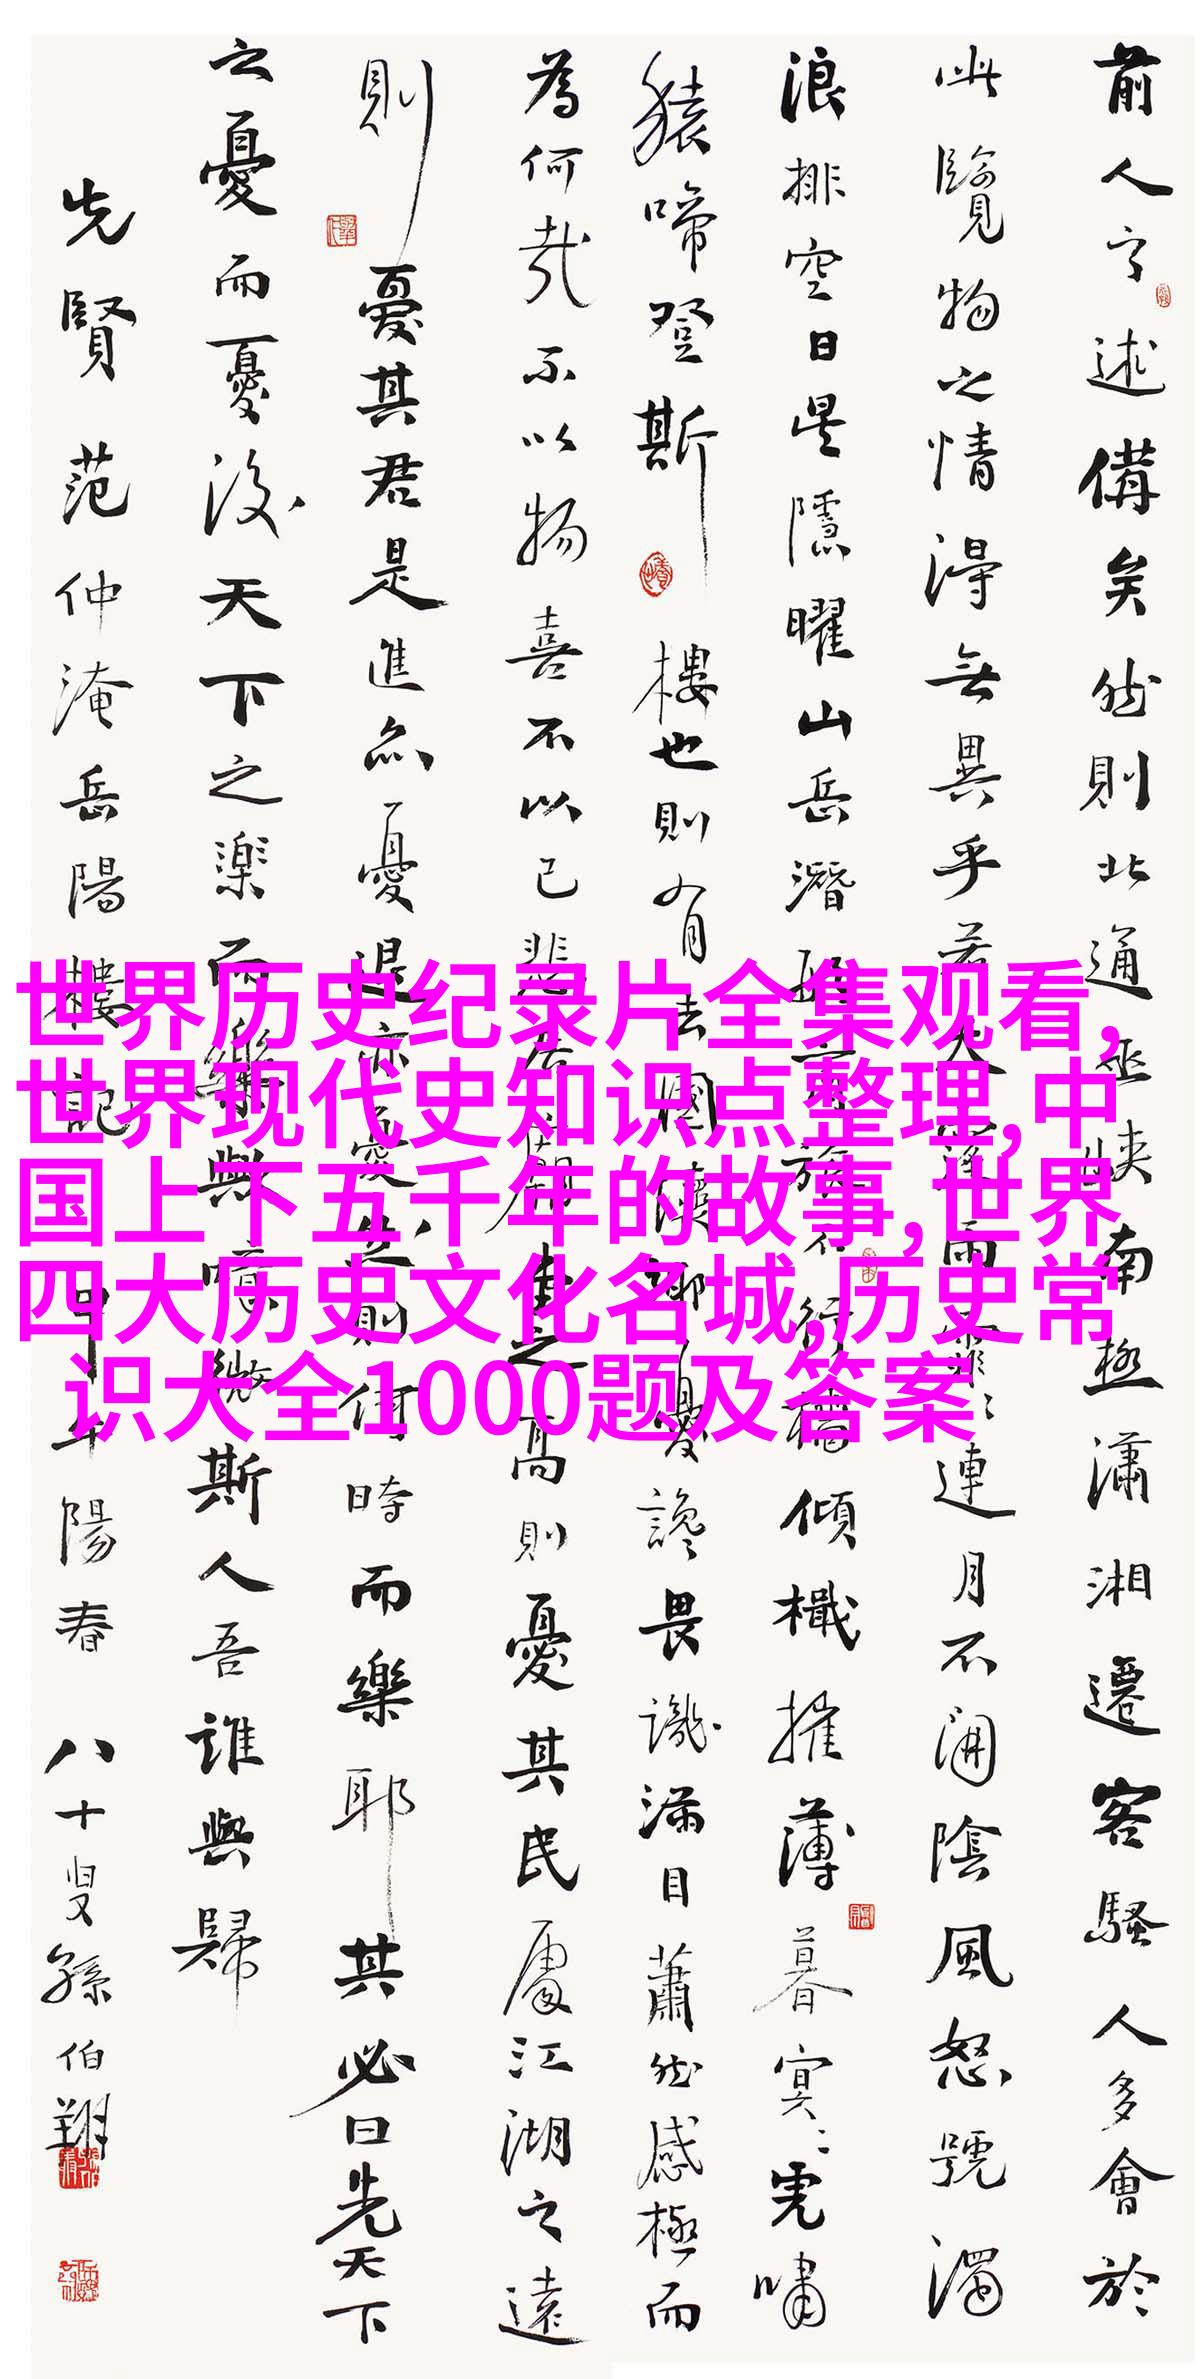 前人之述備矣然則北通巫峽南極瀟湘遷客騷人多會於
此覽物之情得無異乎若夫淫雨霏々連月不開陰風怒號濁
浪排空日星隱曜山岳潛形商旅不行檣傾檝摧薄暮冥々虎嘯
猿啼登斯樓也則有去國懷鄉憂讒畏譏滿目蕭然感極而
為何哉不以物喜不以己悲居廟堂之高則憂其民處江湖之遠
則憂其君是進亦憂退亦憂然則何時而樂耶其必曰先天下
之憂而憂後天下之樂而樂與噫微斯人吾誰與歸
先賢范仲淹岳陽樓記甲午年陽春 八十叟孫伯翔
世界历史纪录片全集观看,
世界现代史知识点整理,中
国上下五千年的故事,世界
四大历史文化名城,历史常
识大全1000题及答案